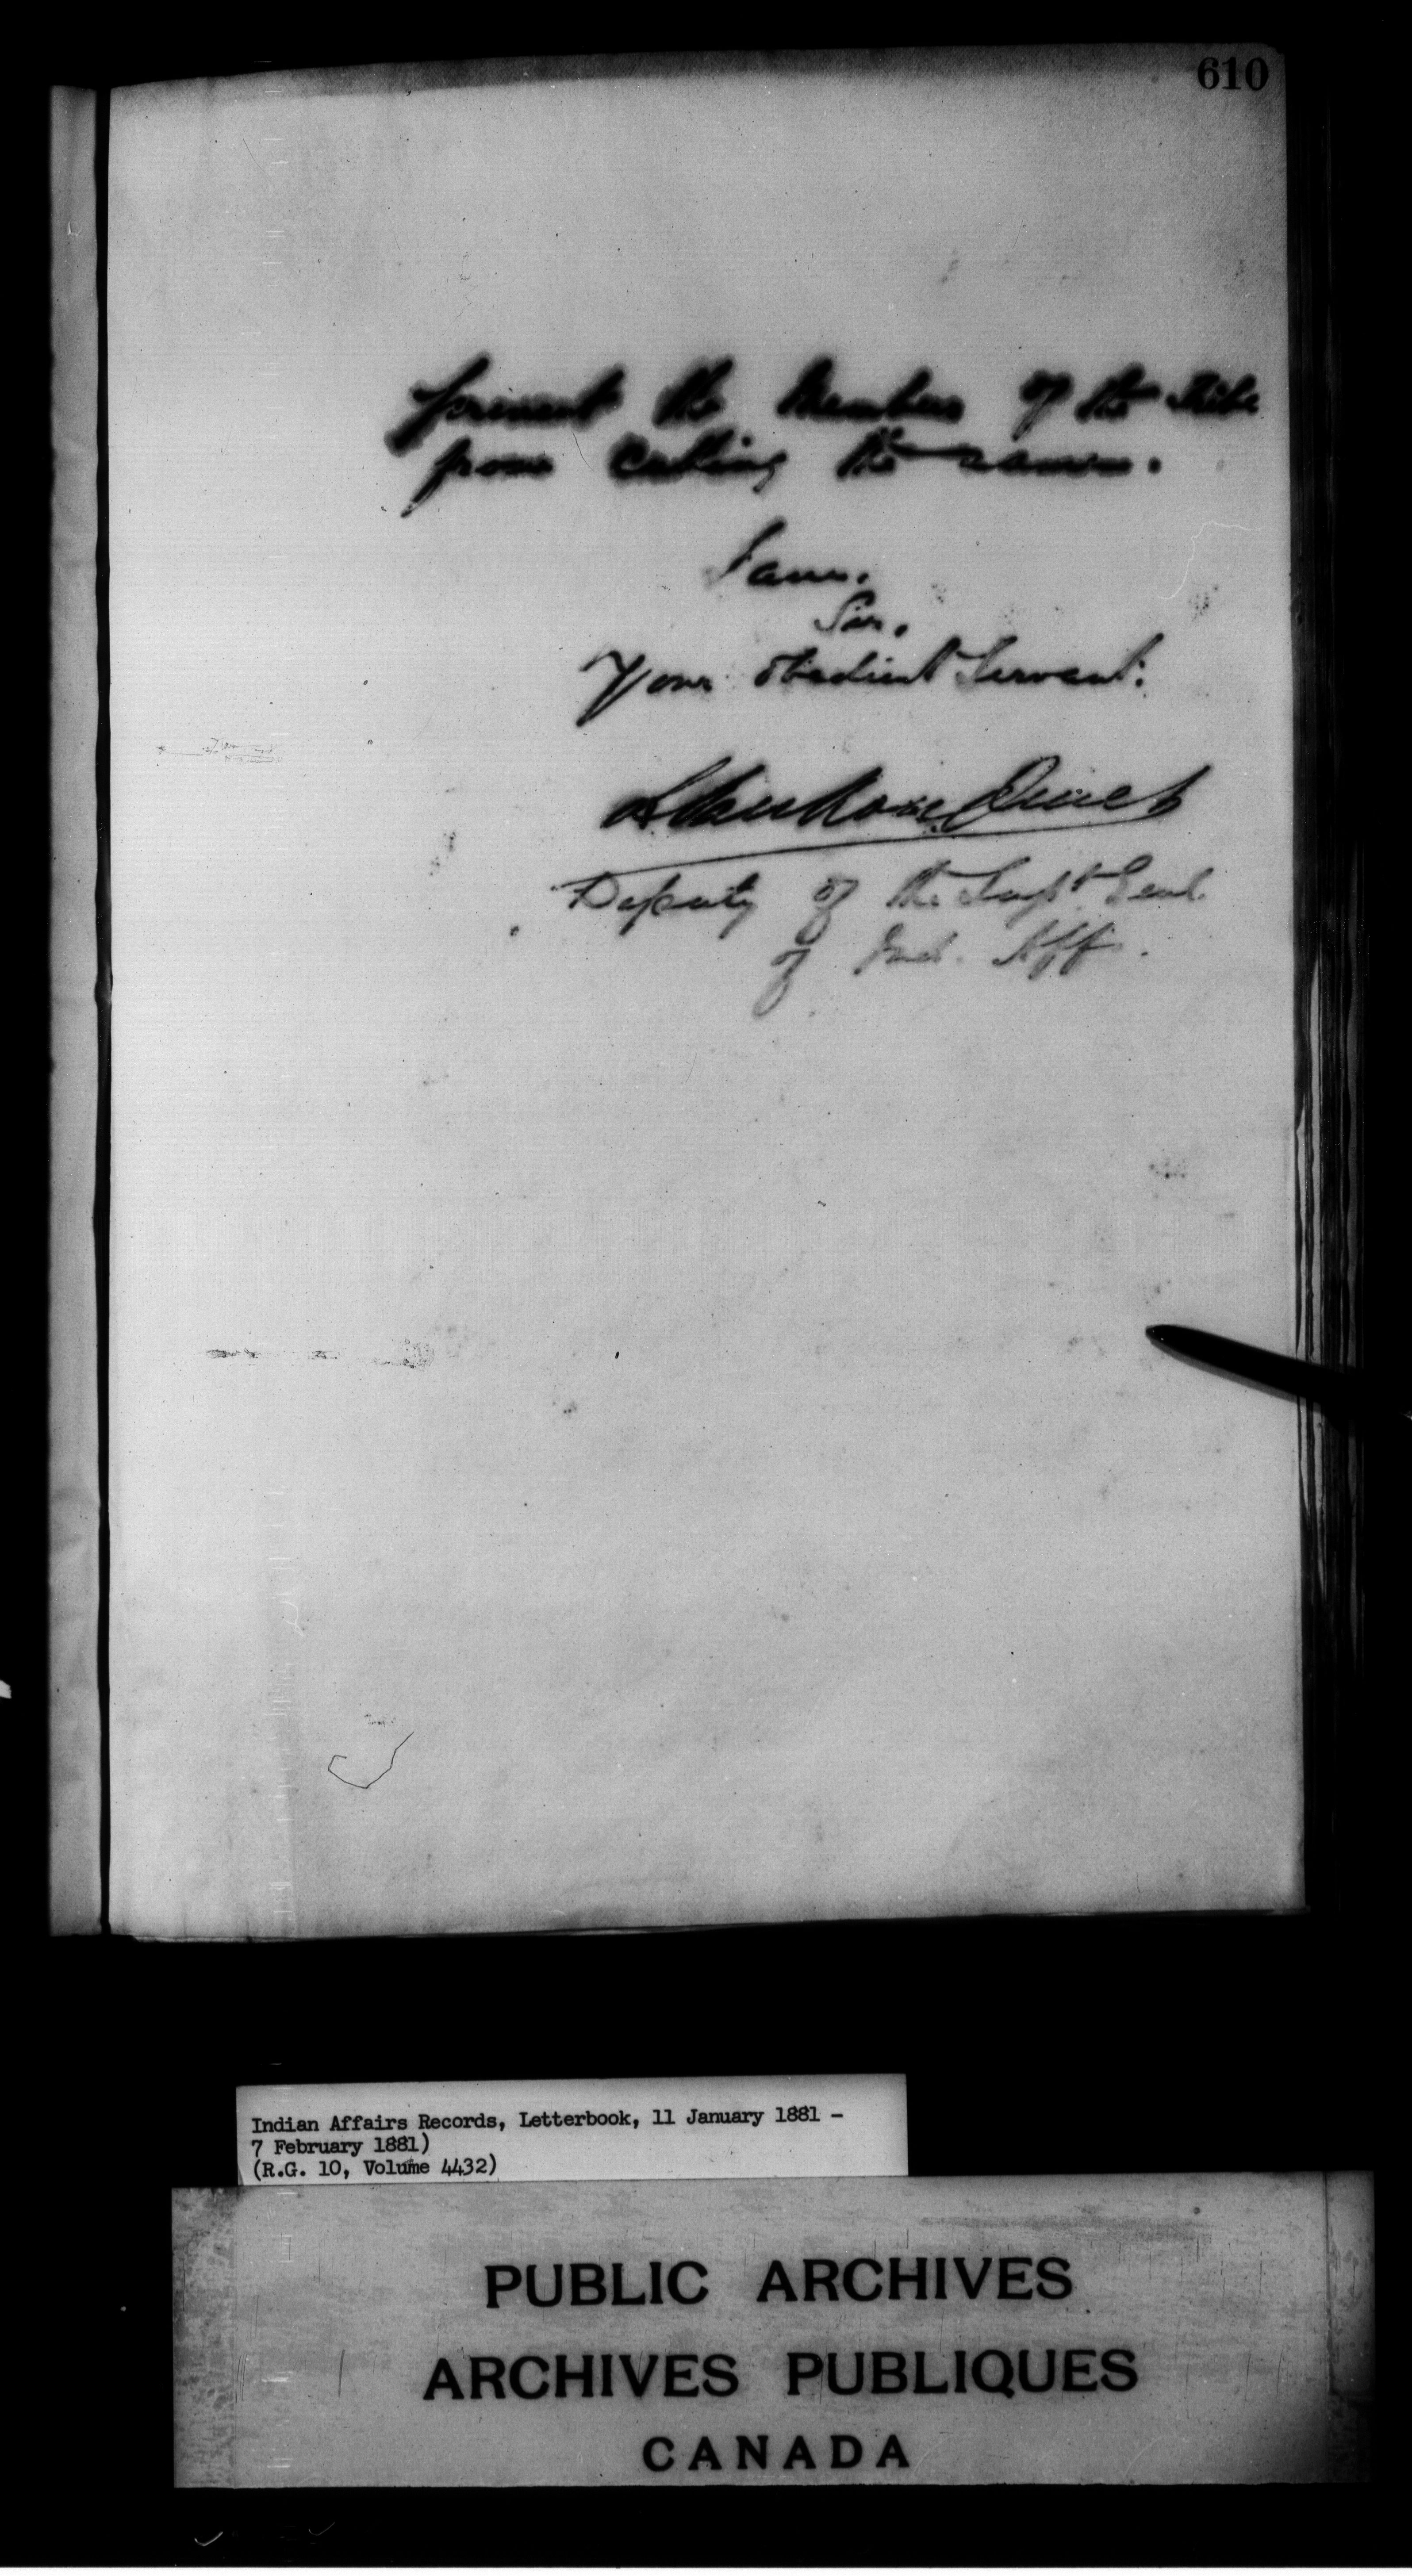 610
prevent the Members of the Tribe
from cutting the same.
I am,
Sir,
Your obedient Servant.
L. VanKoughnet
Deputy of the Supt Genl.
of Ind. Aff.
Indian Affairs Records, Letterbook, 11 January 1881 -
7 February 1881)
(R.G. 10, Volume 4432)
PUBLIC ARCHIVES
ARCHIVES PUBLIQUES
CANADA